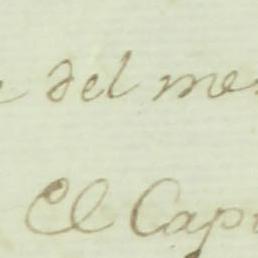 e del me
El Cap